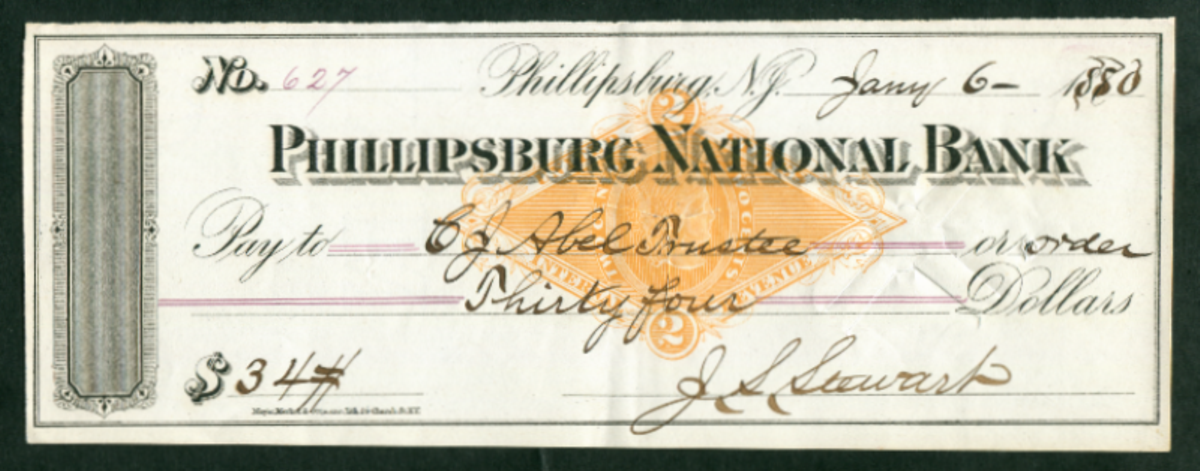 No. 627 Phillipsburg, N.J. Jany 6- 1880
PHILLIPSBURG NATIONAL BANK
Pay to C J Abel Trustee or order
Thirty four Dollars
$ 34
J. S. Stewart
2
INTER REVENUE
2